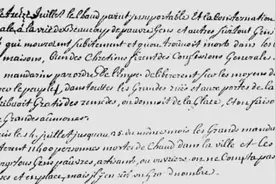 Juillet le Chaud parût insuportable et la consternation
ale, à la vûe de Beaucoup de pauvres Gens et autres surtout Gens
qui mouroient subitement et qu'on trouvoit morts dans les
maisons, Bien des Chrétiens firent des Confessions Generales.
mandarins par ordre de l'Emper. delibererent sur les moyens de
le peuple, dans toutes les Grandes rües et aux portes de la
tribuoit Gratis des remèdes, on donnoit de la Glace, et on faisoit
Grandes aumones.
le 14 juillet jusqu'au 25 du même mois les Grands manda
11400 personnes mortes de Chaud dans la ville et les
Gens pauvres, artisants, ou ouvriers, on ne Compta pas
et en place, mais il y en eût un Grd. nombre.